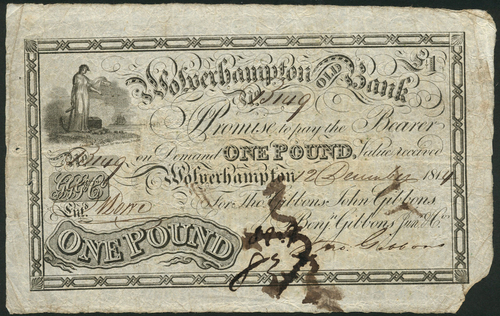 Wolverhampton OLD Bank £1
No 5149
I Promise to pay the Bearer
No 5149 on Demand ONE POUND. Value received
Wolverhampton 12 December 1814
For Tho.s Gibbons John Gibbons
Ent.d Benj.n Gibbons Jun.r & Co
Jno. Gibbons
ONE POUND